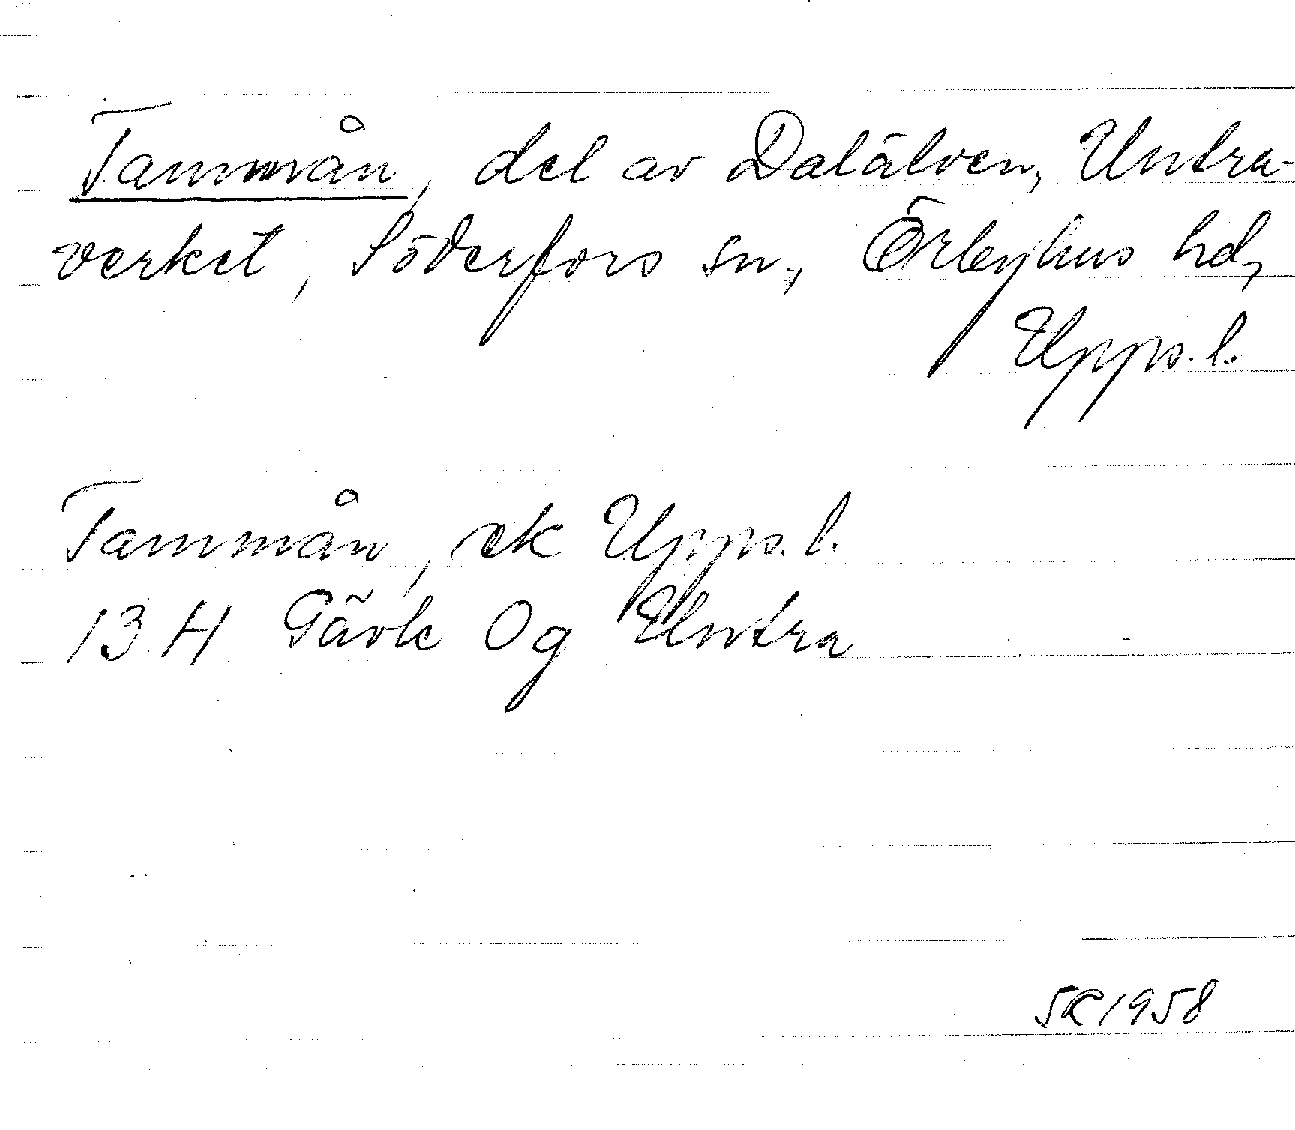 Tammån, del av Dalälven, Untra-
verket, Söderfors sn, Örbyhus hd,
Upps. l.
Tammån, ek Upps. l.
13 H Gävle 0g Untra
1958